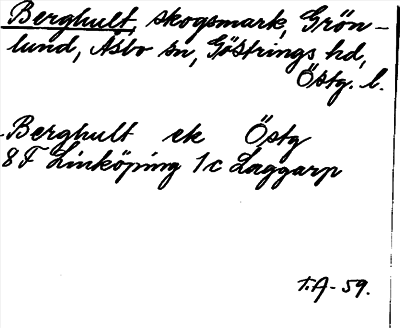 Berghult, skogsmark, Grön-
lund, Åsbo sn, Göstrings hd,
Östg. l.
Berghult ek Östg
8F Linköping 1c Laggarp
T.A-59.